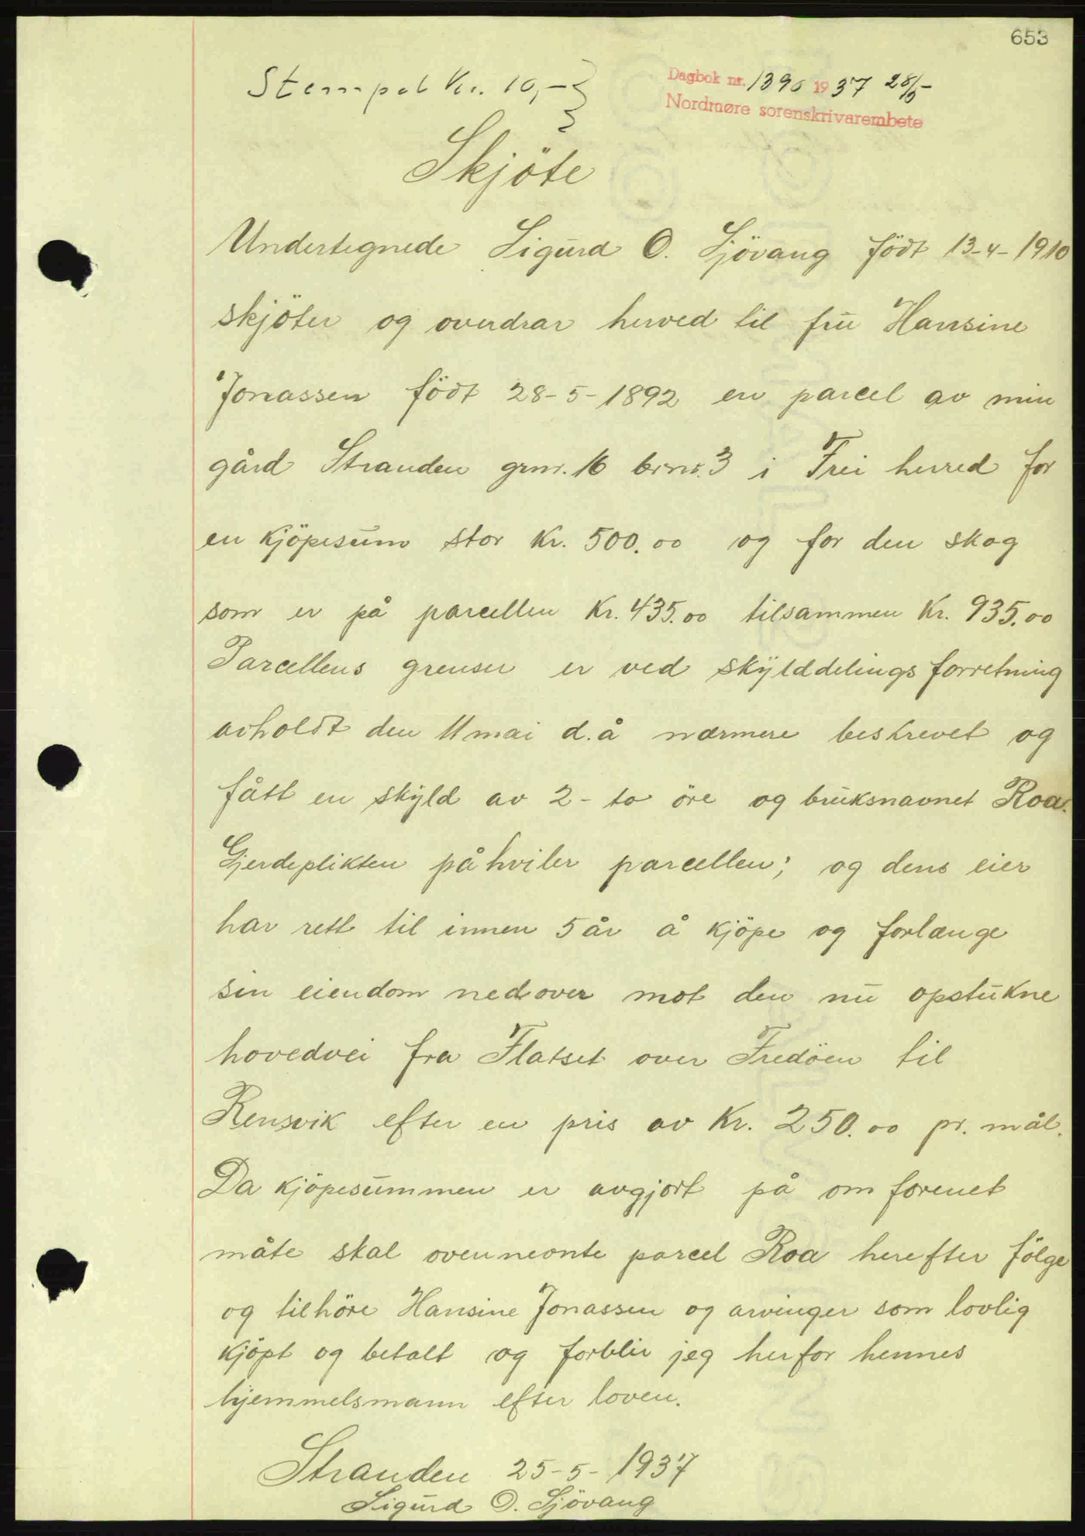 653
Stempel Kr. 10,-
Dagbok nr. 1390 1937 28/5
Nordmøre sorenskrivarembete
Skjöte
Undertegnede Sigurd O. Sjövang födt 13-4-1910
skjöter og overdrar herved til fru Hansine
Jonassen födt 28-5-1892 en parcel av min
gård Stranden grnr. 16 brnr. 3 i Frei herred for
en kjöpesum stor Kr. 500.00 og for den skog
som er på parcellen Kr. 435.00 tilsammen Kr. 935.00
Parcellens grenser er ved skylddelingsforretning
avholdt den 11 mai d.å nærmere beskrevet og
fått en skyld av 2 - to öre og bruksnavnet Roa.
Gjerdeplikten påhviler parcellen; og dens eier
har rett til innen 5 år å kjöpe og forlænge
sin eiendom nedover mot den nu opstukne
hovedvei fra Flatset over Fredöen til
Rensvik efter en pris av Kr. 250.00 pr. mål.
Da kjöpesummen er avgjort på omforenet
måte skal ovennevnte parcel Roa herefter fölge
og tilhöre Hansine Jonassen og arvinger som lovlig
kjöpt og betalt og forblir jeg herfor hennes
hjemmelsmann efter loven.
Stranden 25-5-1937
Sigurd O. Sjövang